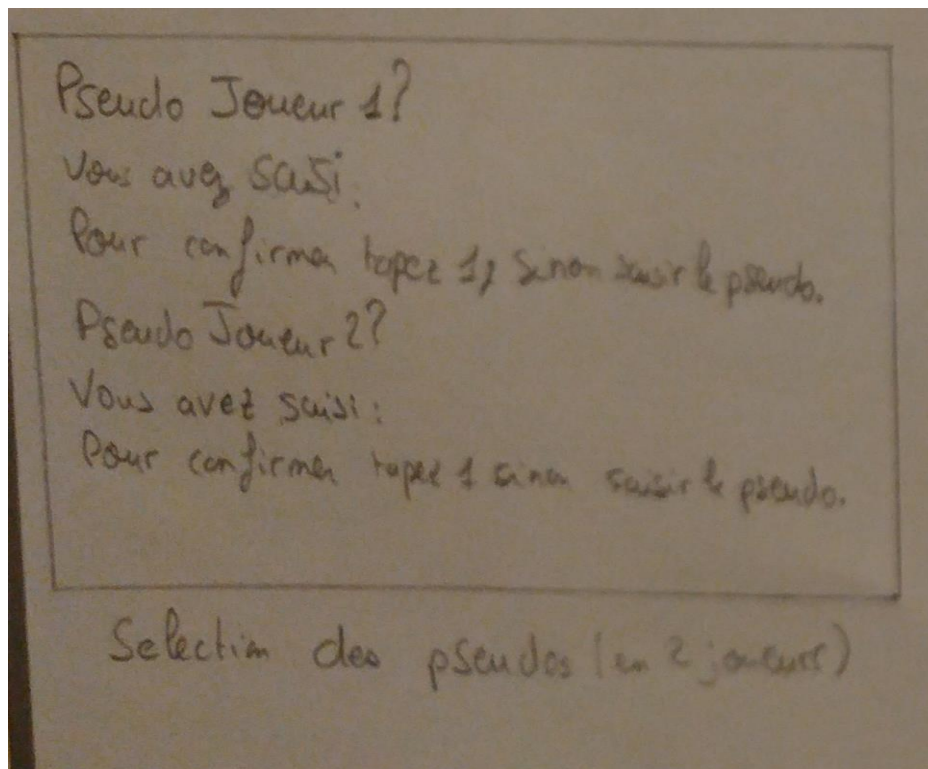 Pseudo Joueur 1?
Vous avez saisi.
Pour confirmer tapez 1, sinon saisir le pseudo.
Pseudo Joueur 2?
Vous avez saisi :
Pour confirmer tapez 1 sinon saisir le pseudo.
Selection des pseudos (en 2 joueurs)